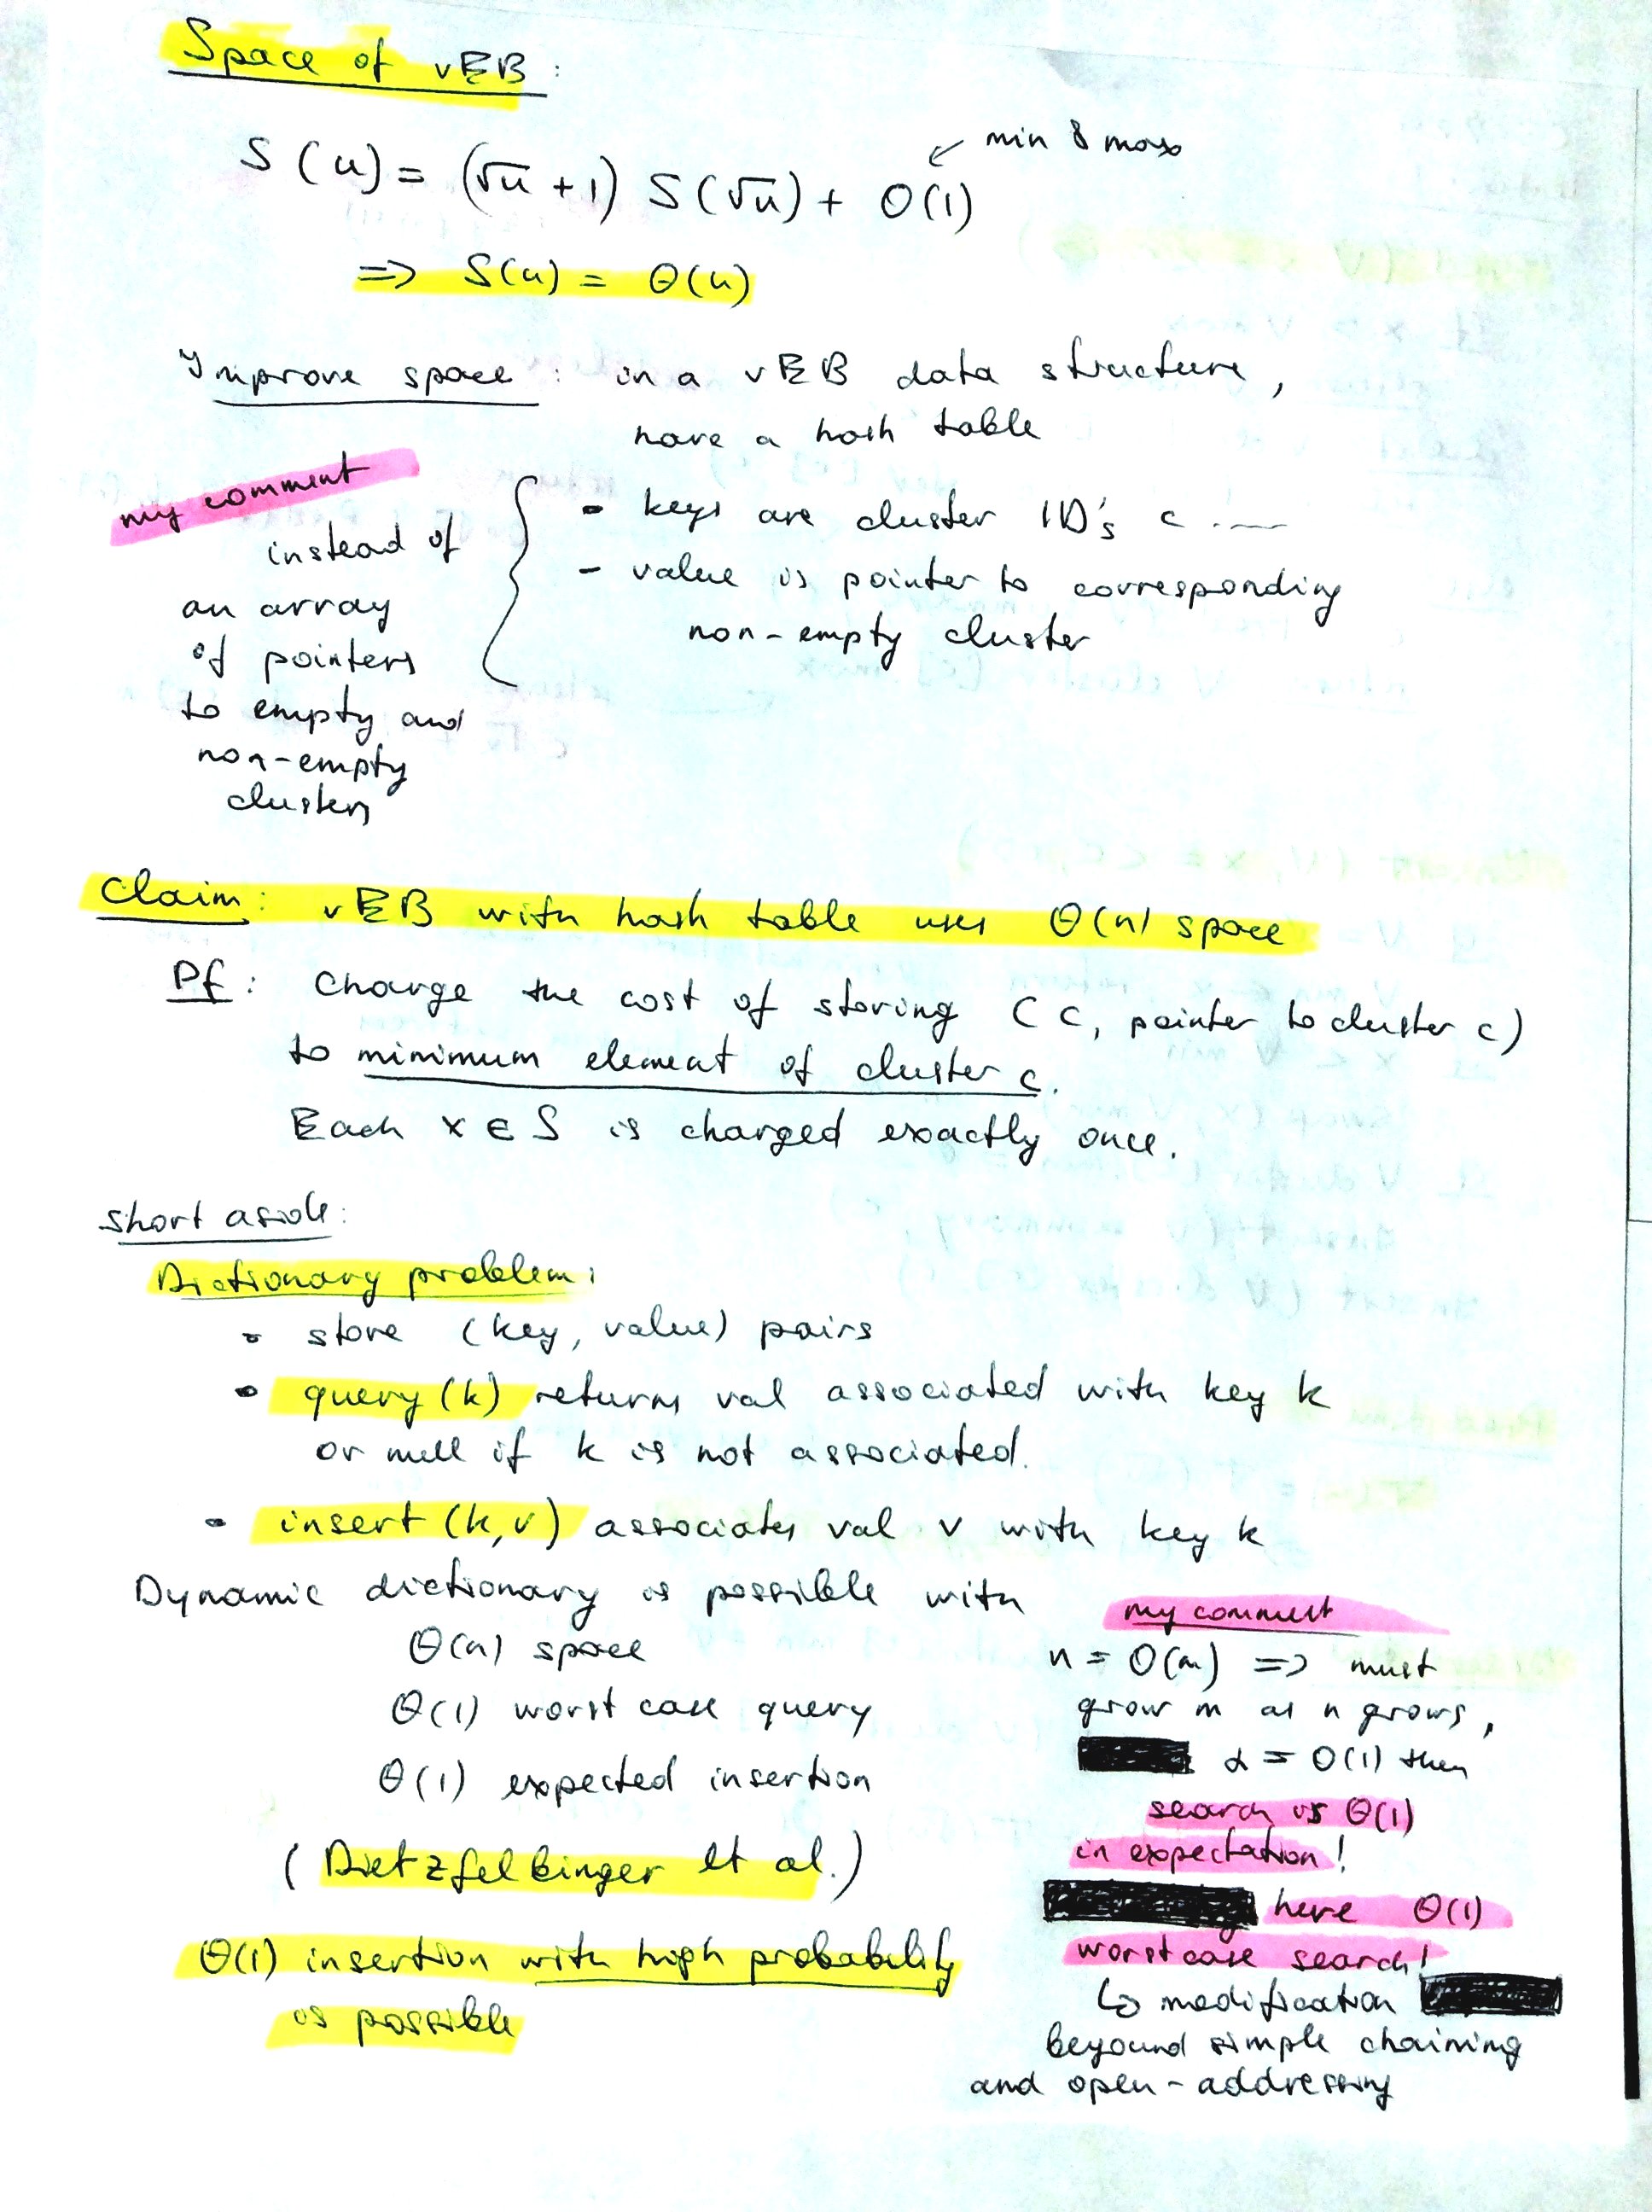 Space of vEB :
min & max
S(u) = (√u + 1) S(√u) + O(1)
=> S(u) = Θ(u)
Improve space : in a vEB data structure,
have a hash table
my comment
instead of
an array
of pointers
to empty and
non-empty
clusters
- keys are cluster ID's c
- value is pointer to corresponding
non-empty cluster
Claim: vEB with hash table uses Θ(n) space
Pf: Charge the cost of storing (c, pointer to cluster c)
to minimum element of cluster c.
Each x ∈ S is charged exactly once.
short aside:
Dictionary problem:
• store (key, value) pairs
• query(k) returns val associated with key k
or null if k is not associated.
• insert(k,v) associates val v with key k
Dynamic dictionary is possible with
Θ(n) space
Θ(1) worst case query
Θ(1) expected insertion
(Dietzfelbinger et al.)
Θ(1) insertion with high probability
is possible
my comment
n = O(m) => must
grow m as n grows,
α = O(1) then
search is Θ(1)
in expectation!
here Θ(1)
worst case search!
↳ modification
beyound simple chaining
and open-addressing